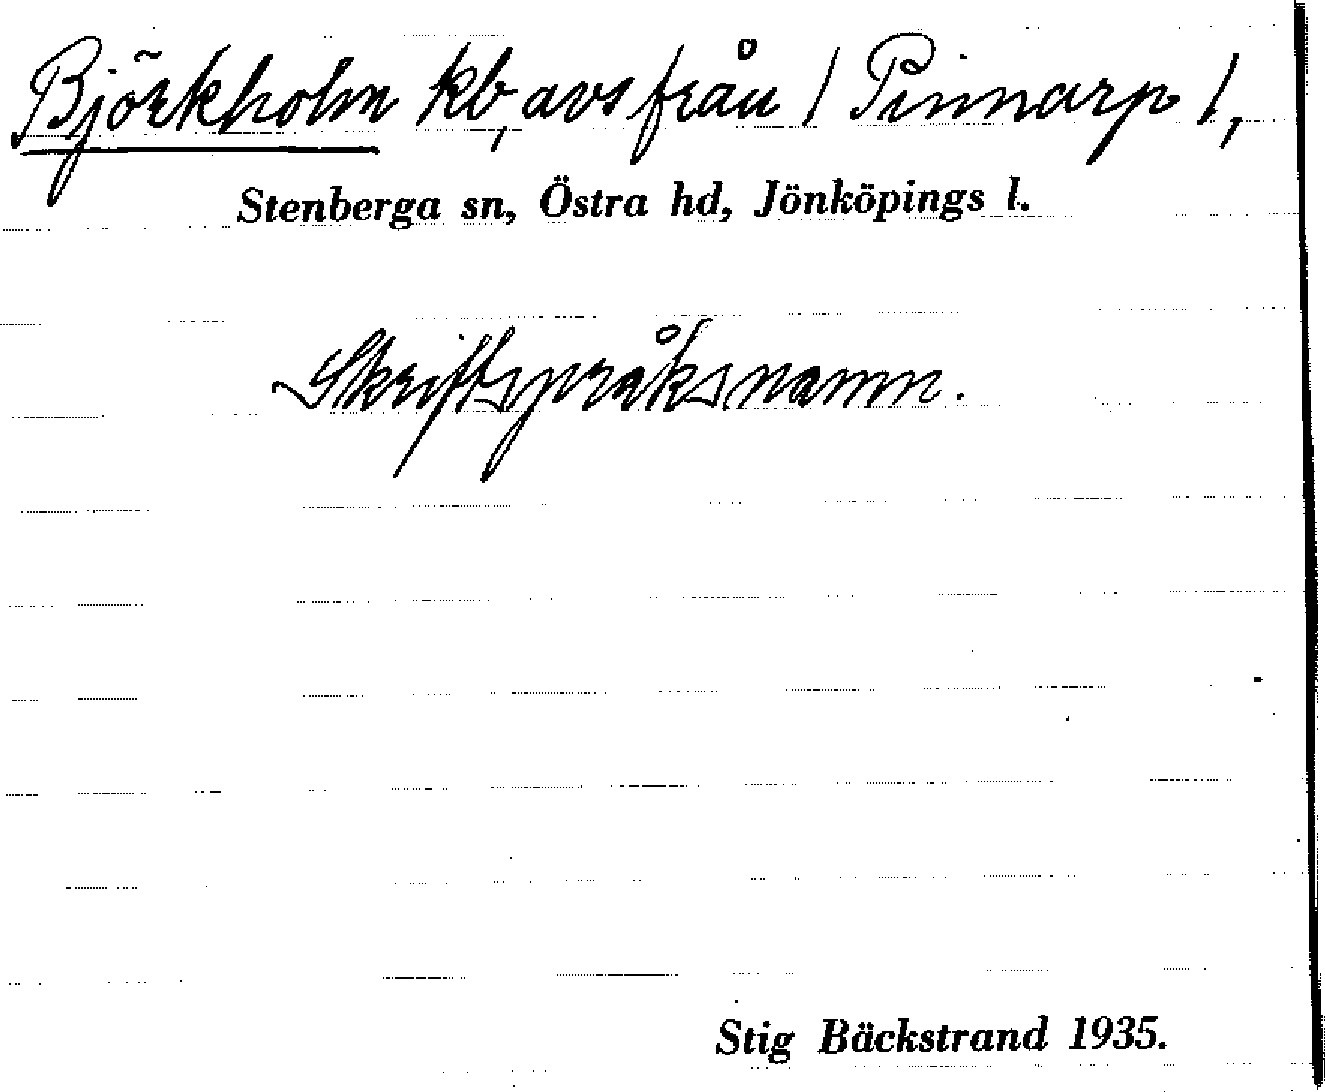 Björkholm kb, avs från / Pinnarp /,
Stenberga sn, Östra hd, Jönköpings l.
Skriftspråksnamn.
Stig Bäckstrand 1935.